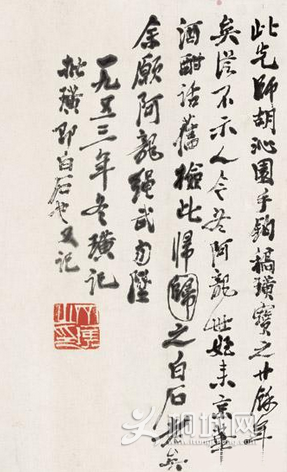 此先師胡沁園手鈎稿璜寶之廿餘年
矣從不示人今冬阿龍世姪來京華
酒酣話舊撿此歸歸之白石
余願阿龍繩武勿墜
一九五三年冬璜記
批璜即白石也又記